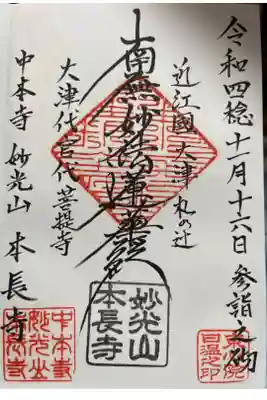 令和四稔十一月十六日 参詣之砌
近江國 大津 札の辻
南無妙法蓮華経
大津代官代 菩提寺
中本寺 妙光山 本長寺
妙光山
本長寺
中本寺
妙光山
本長寺